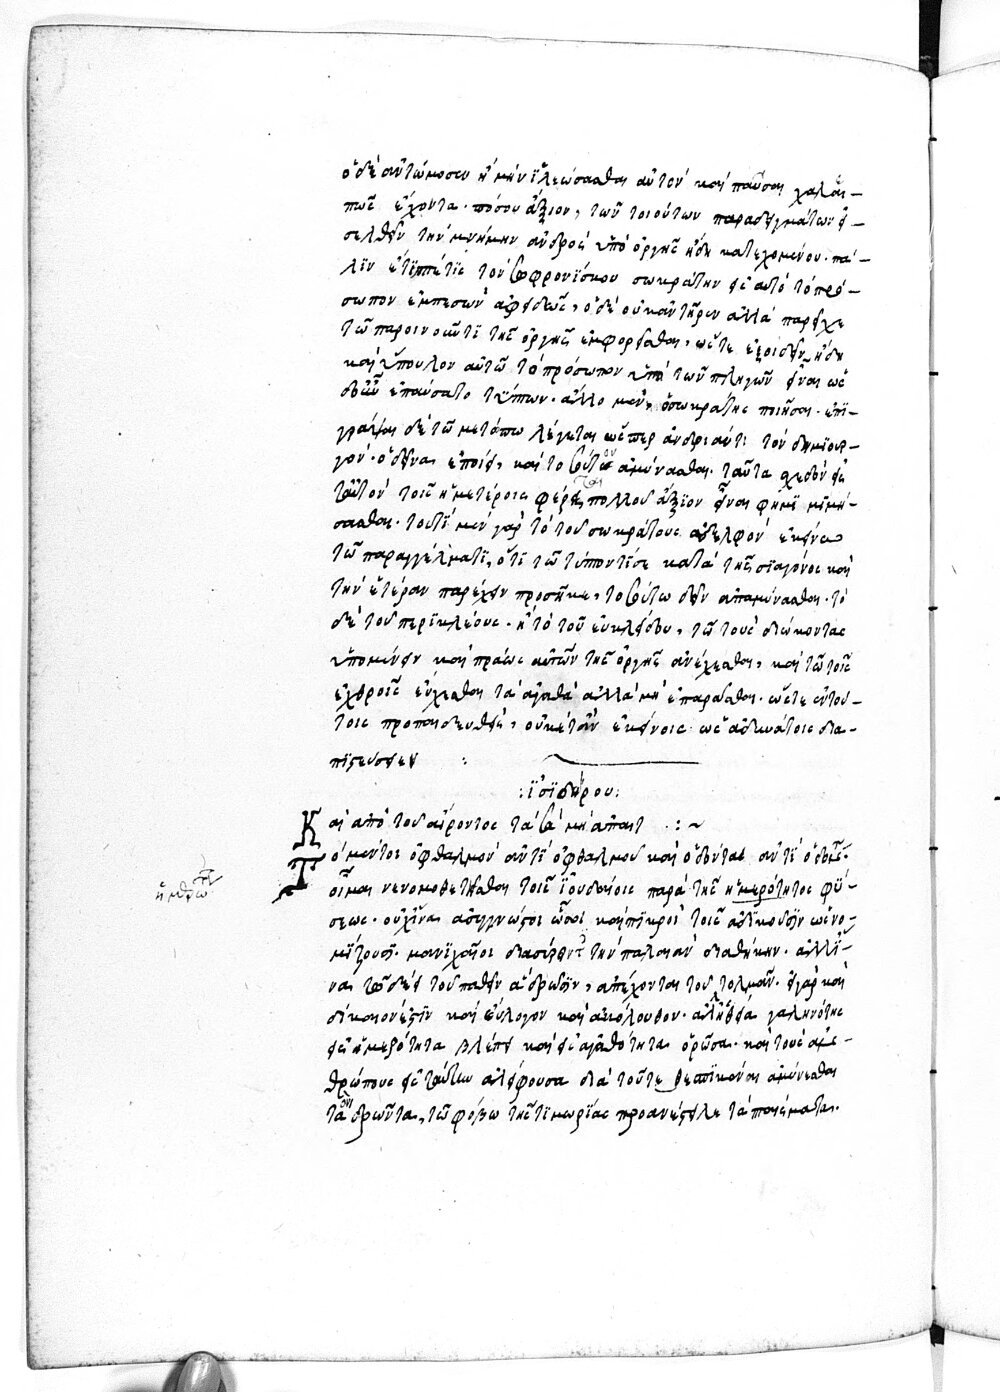 ὁ δὲ ἀντώμοσεν ἦ μὴν ἱλεώσασθαι αὐτὸν καὶ παῦσαι χαλε-
πῶς ἔχοντα. πόσου ἄξιον, τῶν τοιούτων παραδειγμάτων εἰ-
σελθεῖν τὴν μνήμην ἀνδρὸς ὑπὸ ὀργῆς ἤδη κατεχομένου. πά-
λιν ἔτυπτέ τις τὸν σωφρονίσκου σωκράτην εἰς αὐτὸ τὸ πρό-
σωπον ἐμπεσὼν ἀφειδῶς, ὁ δὲ οὐκ ἀντῆρεν ἀλλὰ παρεῖχε
τῶ παροινοῦντι τῆς ὀργῆς ἐμφορεῖσθαι, ὥστε ἐξοιδεῖν ἤδη
καὶ ὕπουλον αὐτῶ τὸ πρόσωπον ὑπὸ τῶν πληγῶν εἶναι ὡς
δ' οὖν ἐπαύσατο τύπτων. ἄλλο μὲν, ὁ σωκράτης ποιῆσαι. ἐπι-
γράψαι δὲ τῶ μετώπω λέγεται ὥσπερ ἀνδριάντι τὸν δημιουρ-
γόν. ὁ δεῖνα ἐποίει, καὶ τοσοῦτον ἀμύνασθαι. ταῦτα σχεδὸν εἰς
ταυτὸν τοῖς ἡμετέροις φέροντα πολλοῦ ἄξιον εἶναι φημὶ μιμή-
σασθαι. τουτὶ μὲν γὰρ τὸ τοῦ σωκράτους ἀδελφὸν ἐκείνω
τῶ παραγγέλματι, ὅτι τῶ τύπτοντί σε κατὰ τῆς σιαγόνος καὶ
τὴν ἑτέραν παρέχειν προσῆκε, τοσούτω δεῖν ἀπαμύνασθαι. τὸ
δὲ τοῦ περικλέους. ἢ τὸ τοῦ εὐκλείδου, τῶ τοὺς διώκοντας
ὑπομένειν καὶ πράως αὐτῶν τῆς ὀργῆς ἀνέχεσθαι, καὶ τῶ τοῖς
ἐχθροῖς εὔχεσθαι τὰ ἀγαθὰ ἀλλὰ μὴ ἐπαρᾶσθαι. ὥστε ὁ τού-
τοις προπαιδευθεὶς, οὐκέτ' ἂν ἐκείνοις ὡς ἀδυνάτοις δια-
πιστεύσειεν :
: ἰσιδώρου :
Καὶ ἀπὸ τοῦ αἴροντος τὰ σὰ μὴ ἀπαίτ : ~
Τὸ μέντοι ὀφθαλμὸν ἀντὶ ὀφθαλμοῦ καὶ ὀδόντα ἀντὶ ὀδόντος.
οἶμαι νενομοθετῆσθαι τοῖς ἰουδαίοις παρὰ τῆς ἡμερότητος φύ-
σεως. οὐχ ἵνα ἀσύγγνωστοι ὦσι καὶ πικροὶ τοῖς ἀδικοῦσιν ὡς νο-
μίζουσι μανιχαῖοι διασύροντες τὴν παλαιὰν διαθήκην. ἀλλ' ἵ-
να τῶ δέει τοῦ παθεῖν ἃ δρῶσιν, ἀπέχονται τοῦ τολμᾶν. ἦ γὰρ καὶ
δίκαιόν ἐστιν καὶ εὔλογον καὶ ἀκόλουθον. ἀλήθεια γαληνότης
εἰς ἡμερότητα βλέπει καὶ εἰς ἀγαθότητα ὁρῶσα. καὶ τοὺς ἀν-
θρώπους εἰς ταύτην ἀλείφουσα διὰ τοῦτο θεσπίζουσα ἀμύνεσθαι
τὰ δρῶντα, τῶ φόβω τῆς τιμωρίας προανέστειλε τὰ ποιήματα.